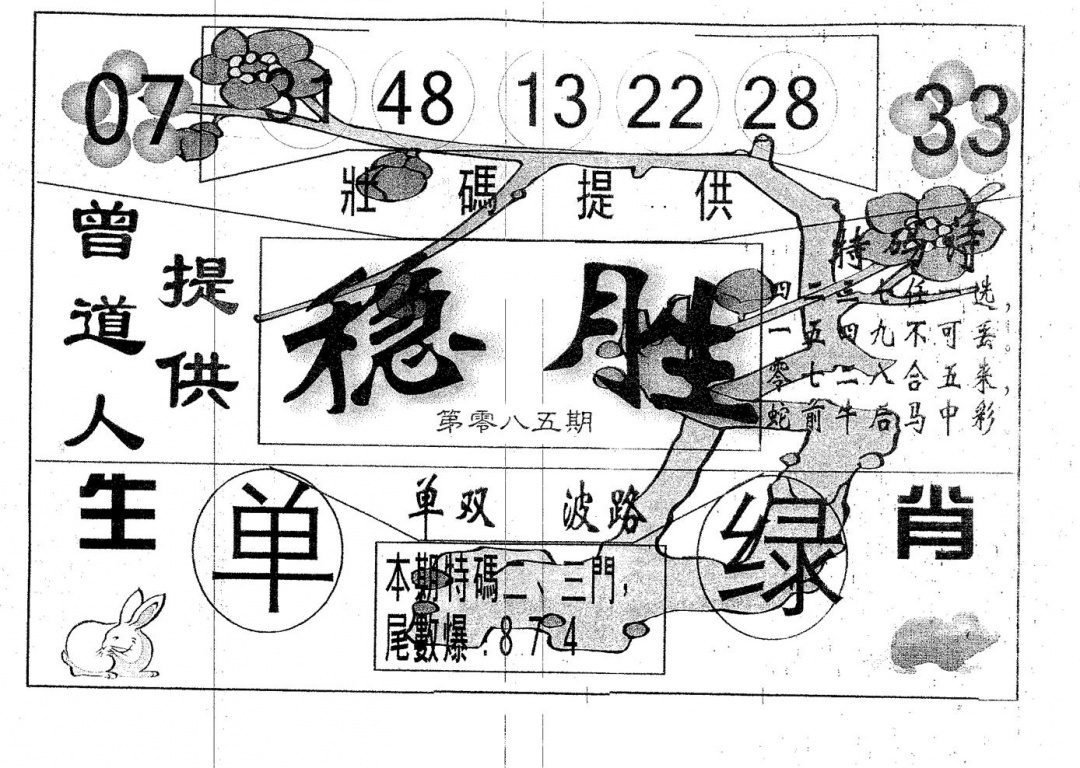 07 31 48 13 22 28 33
壯碼提供
曾道人
提供
特码诗
四二三七任一选，
一五四九不可丢。
零七二八合五来，
蛇前牛后马中彩
稳胜
第零八五期
生肖
单双 波路
单
绿
本期特碼二、三門，
尾數爆：8 7 4